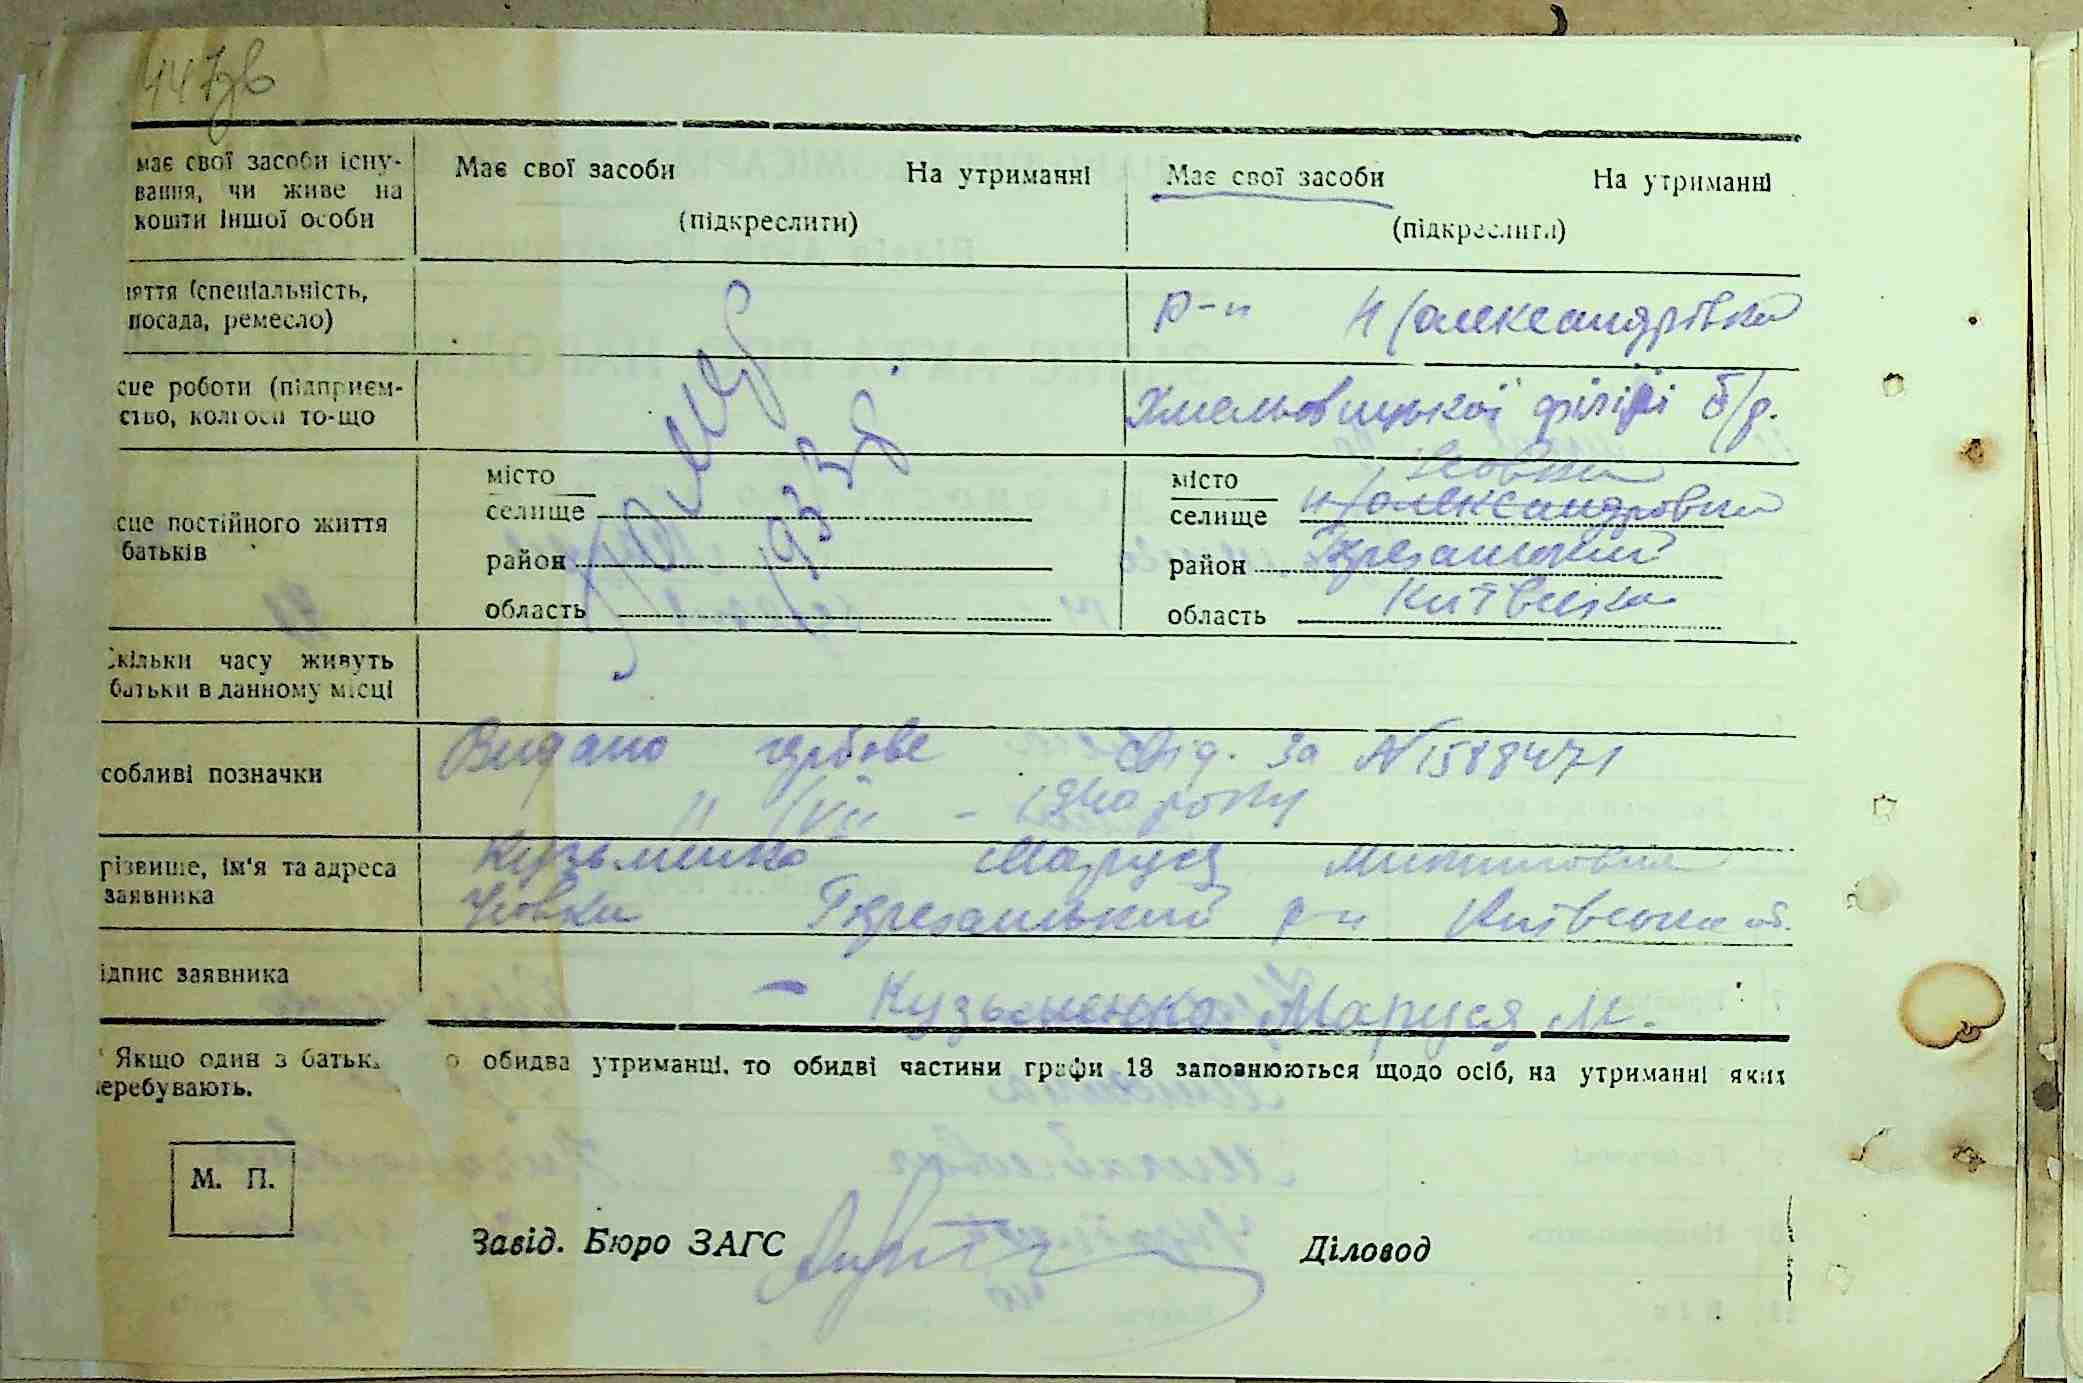 447зв
має свої засоби існу-
вання, чи живе на
кошти іншої особи
Має свої засоби На утриманні
(підкреслити)
Має свої засоби На утриманні
(підкреслити)
няття (спеціальність,
посада, ремесло)
р-н Н/олександрівка
сце роботи (підприєм-
ство, колгосп то-що
Хмельовицької філії б/р.
Помер
1933 р
сце постійного життя
батьків
місто
селище
район
область
місто Усовка
селище Н/олександровка
район Згурівський
область Київська
Скільки часу живуть
батьки в данному місці
собливі позначки
Видано гербове свід. за № 1588471
11/VII - 1940 року
різвище, ім'я та адреса
заявника
Кузьменко Маруся
Усовки р-н Київська об.
ідпис заявника
– Кузьменко Маруся М.
Якщо один з батьк о обидва утриманці, то обидві частини графи 13 заповнюються щодо осіб, на утриманні яких
перебувають.
М. П.
Завід. Бюро ЗАГС
Діловод